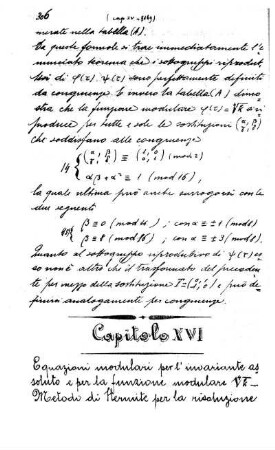 306 (cap XV - §149)
merati nella tabella (A).
Da queste formole si trae immediatamente l'e-
nunciato teorema che i sottogruppi riprodut-
tori di φ(τ), ψ(τ) sono perfettamente definiti
da congruenze. E invero la tabella (A) dimo-
stra che la funzione modulare φ(τ) = si ri
produce per tutte e sole le sostituzioni (α, β / γ, δ)
che soddisfano alle congruenze
(α, β / γ, δ) ≡ (1, 0 / 0, 1) (mod 2)
αβ + α² ≡ 1 (mod 16),
la quale ultima può anche surrogarsi con le
due seguenti
β ≡ 0 (mod 16) ; con α ≡ ±1 (mod 8)
β ≡ 8 (mod 16) ; con α ≡ ±3 (mod 8).
Quanto al sottogruppo riproduttivo di ψ(τ) es
so non è altro che il trasformato del preceden-
te per mezzo della sostituzione e può de-
finirsi analogamente per congruenze.
Capitolo XVI
Equazioni modulari per l'invariante as
soluto e per la funzione modulare
Metodo di Hermite per la risoluzione